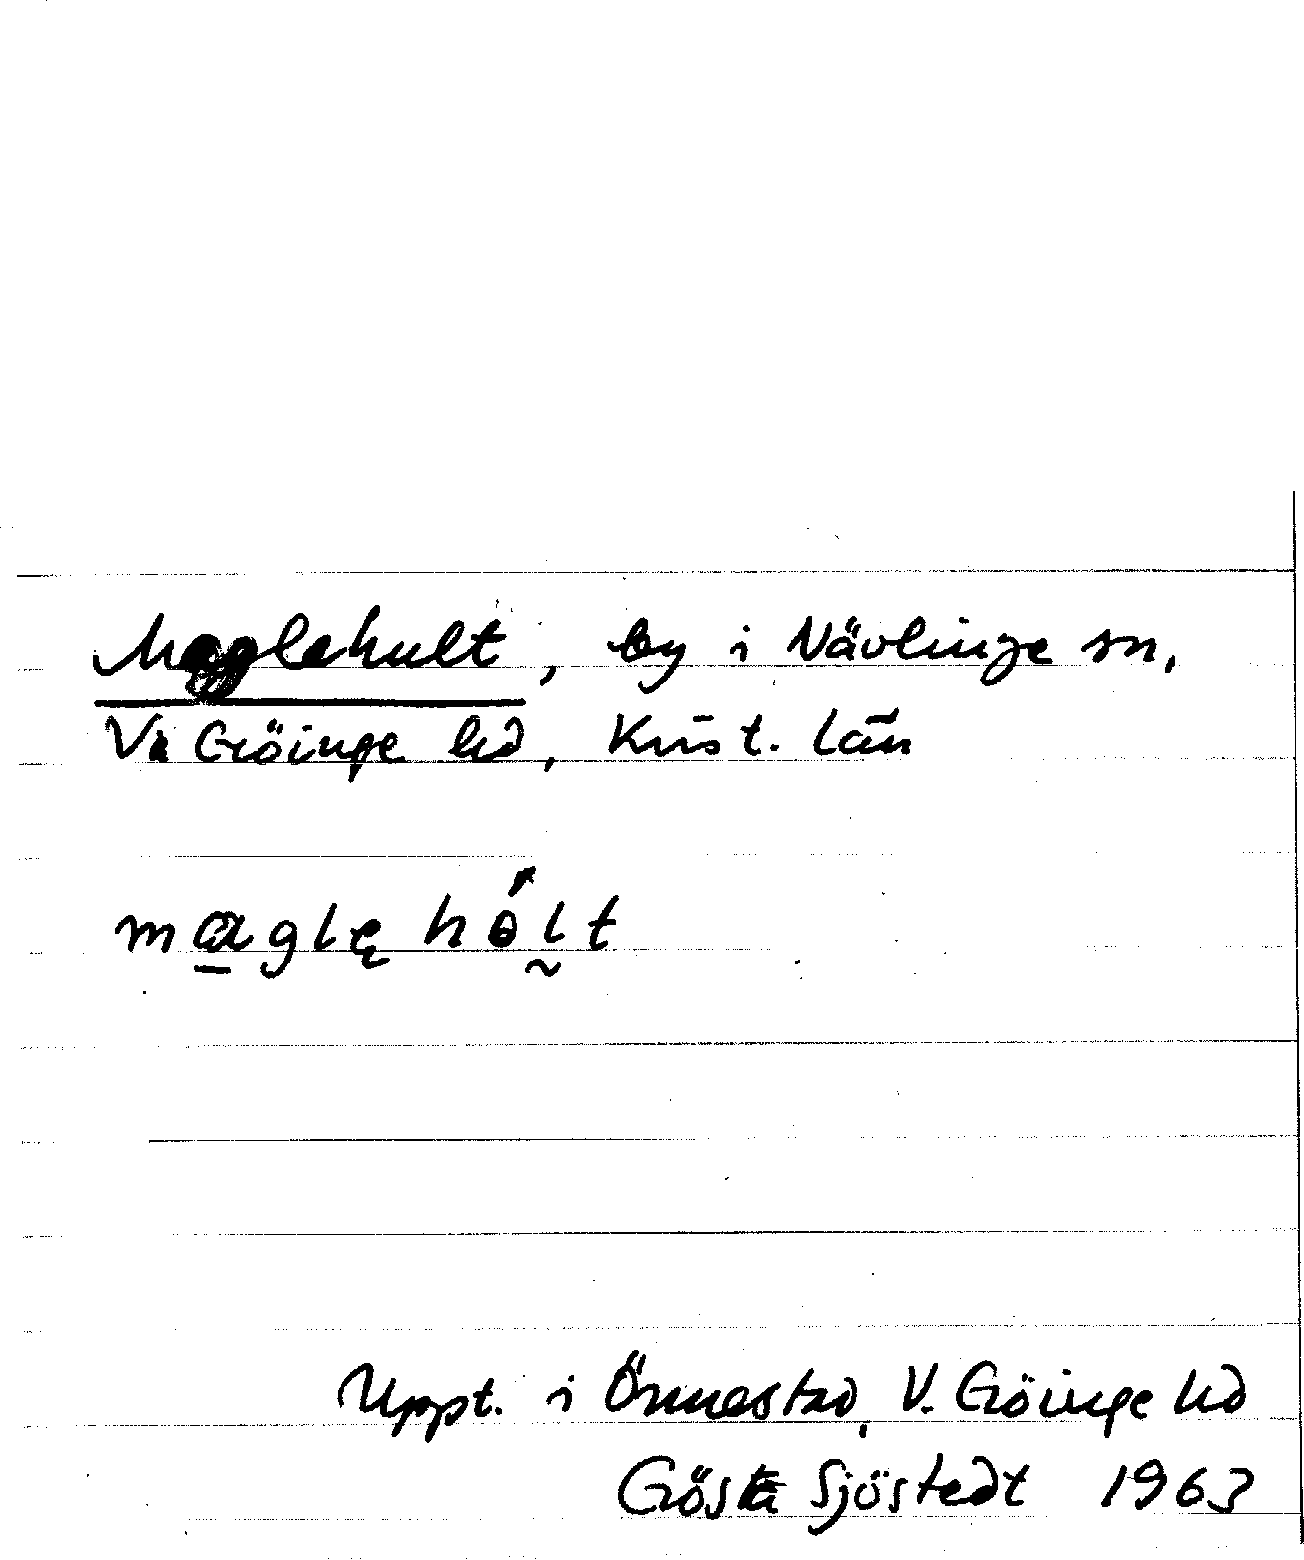 Maglehult, by i Nävlinge sn,
Va Göinge hd, Krist. län
maglę hólt
Uppt. i Önnestad, V. Göinge hd
Gösta Sjöstedt 1963